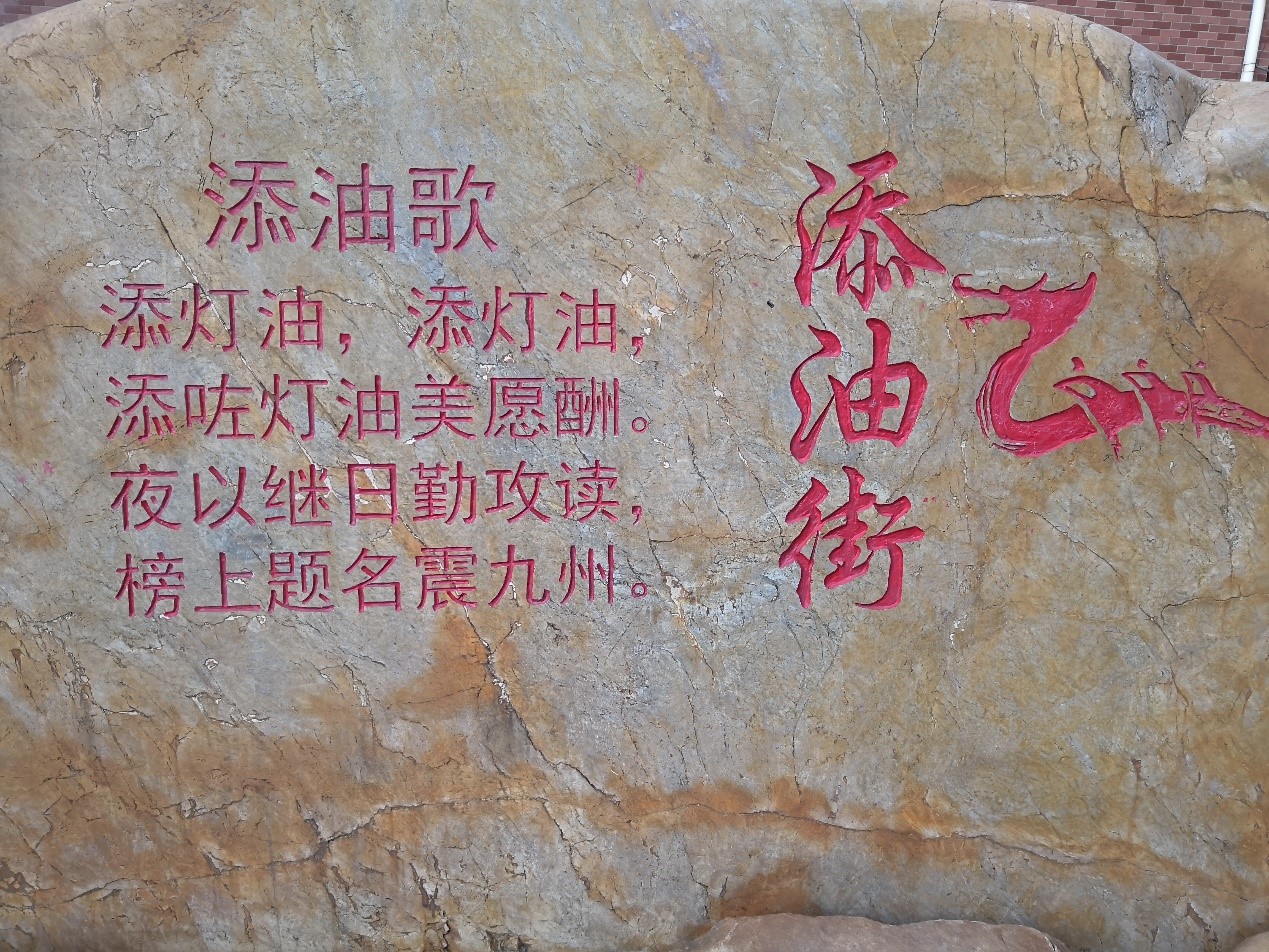 添油歌
添灯油，添灯油，
添咗灯油美愿酬。
夜以继日勤攻读，
榜上题名震九州。
添油街